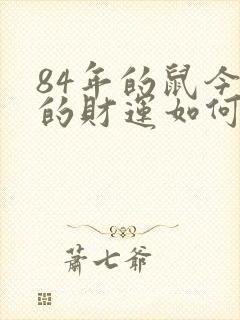 84年的鼠今
的財運如何
蕭七爺